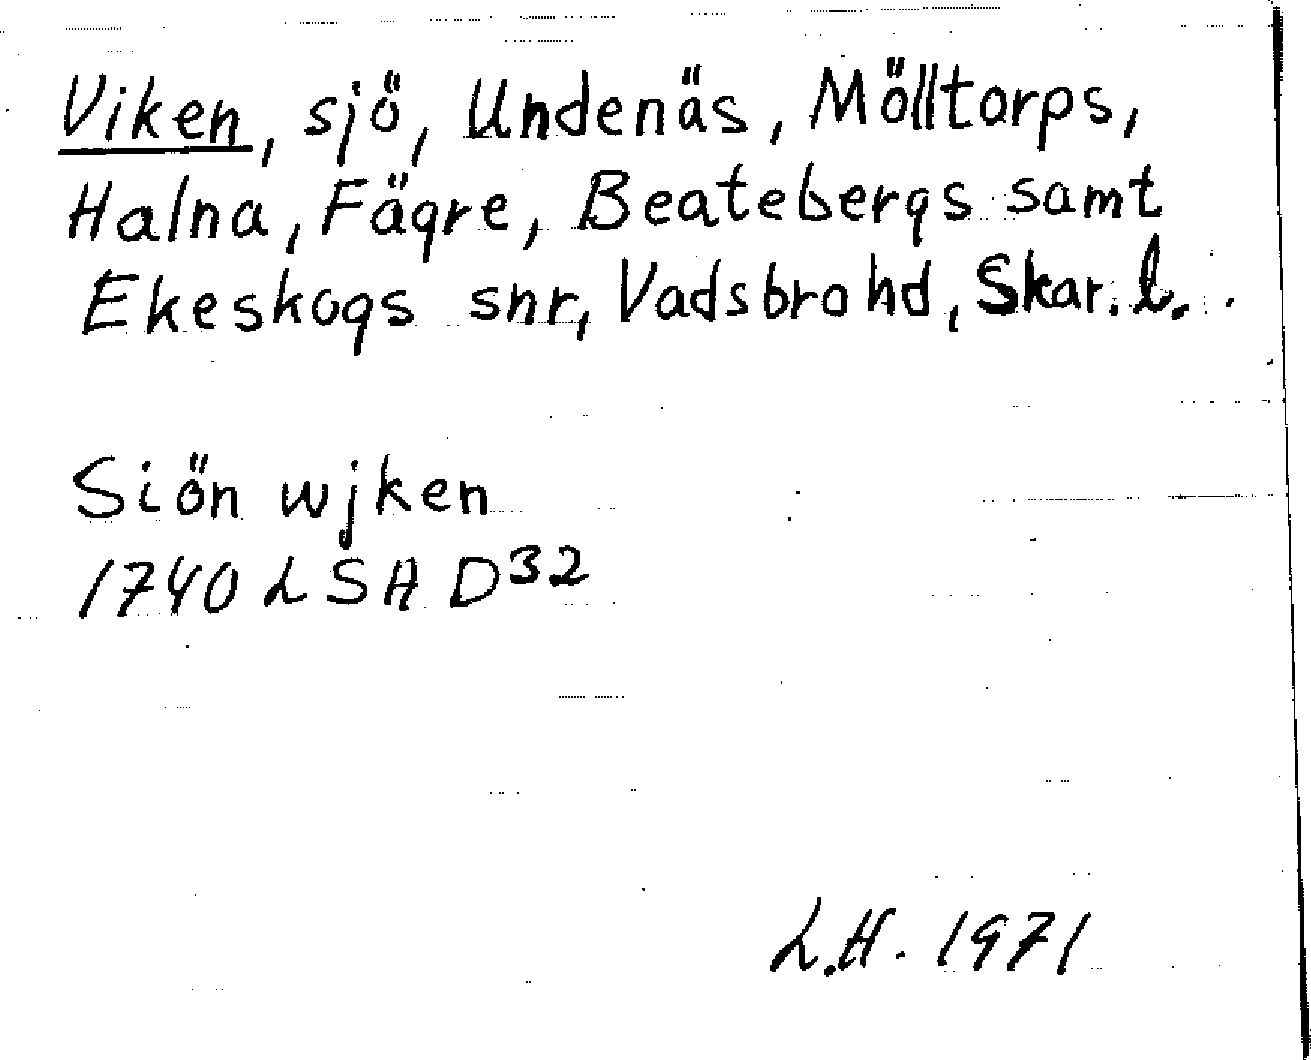 Viken, sjö, Undenäs, Mölltorps,
Halna, Fägre, Beatebergs samt
Ekeskogs snr, Vadsbro hd, Skar. l.
Siön wjken
1740 LSA D32
L.H. 1971